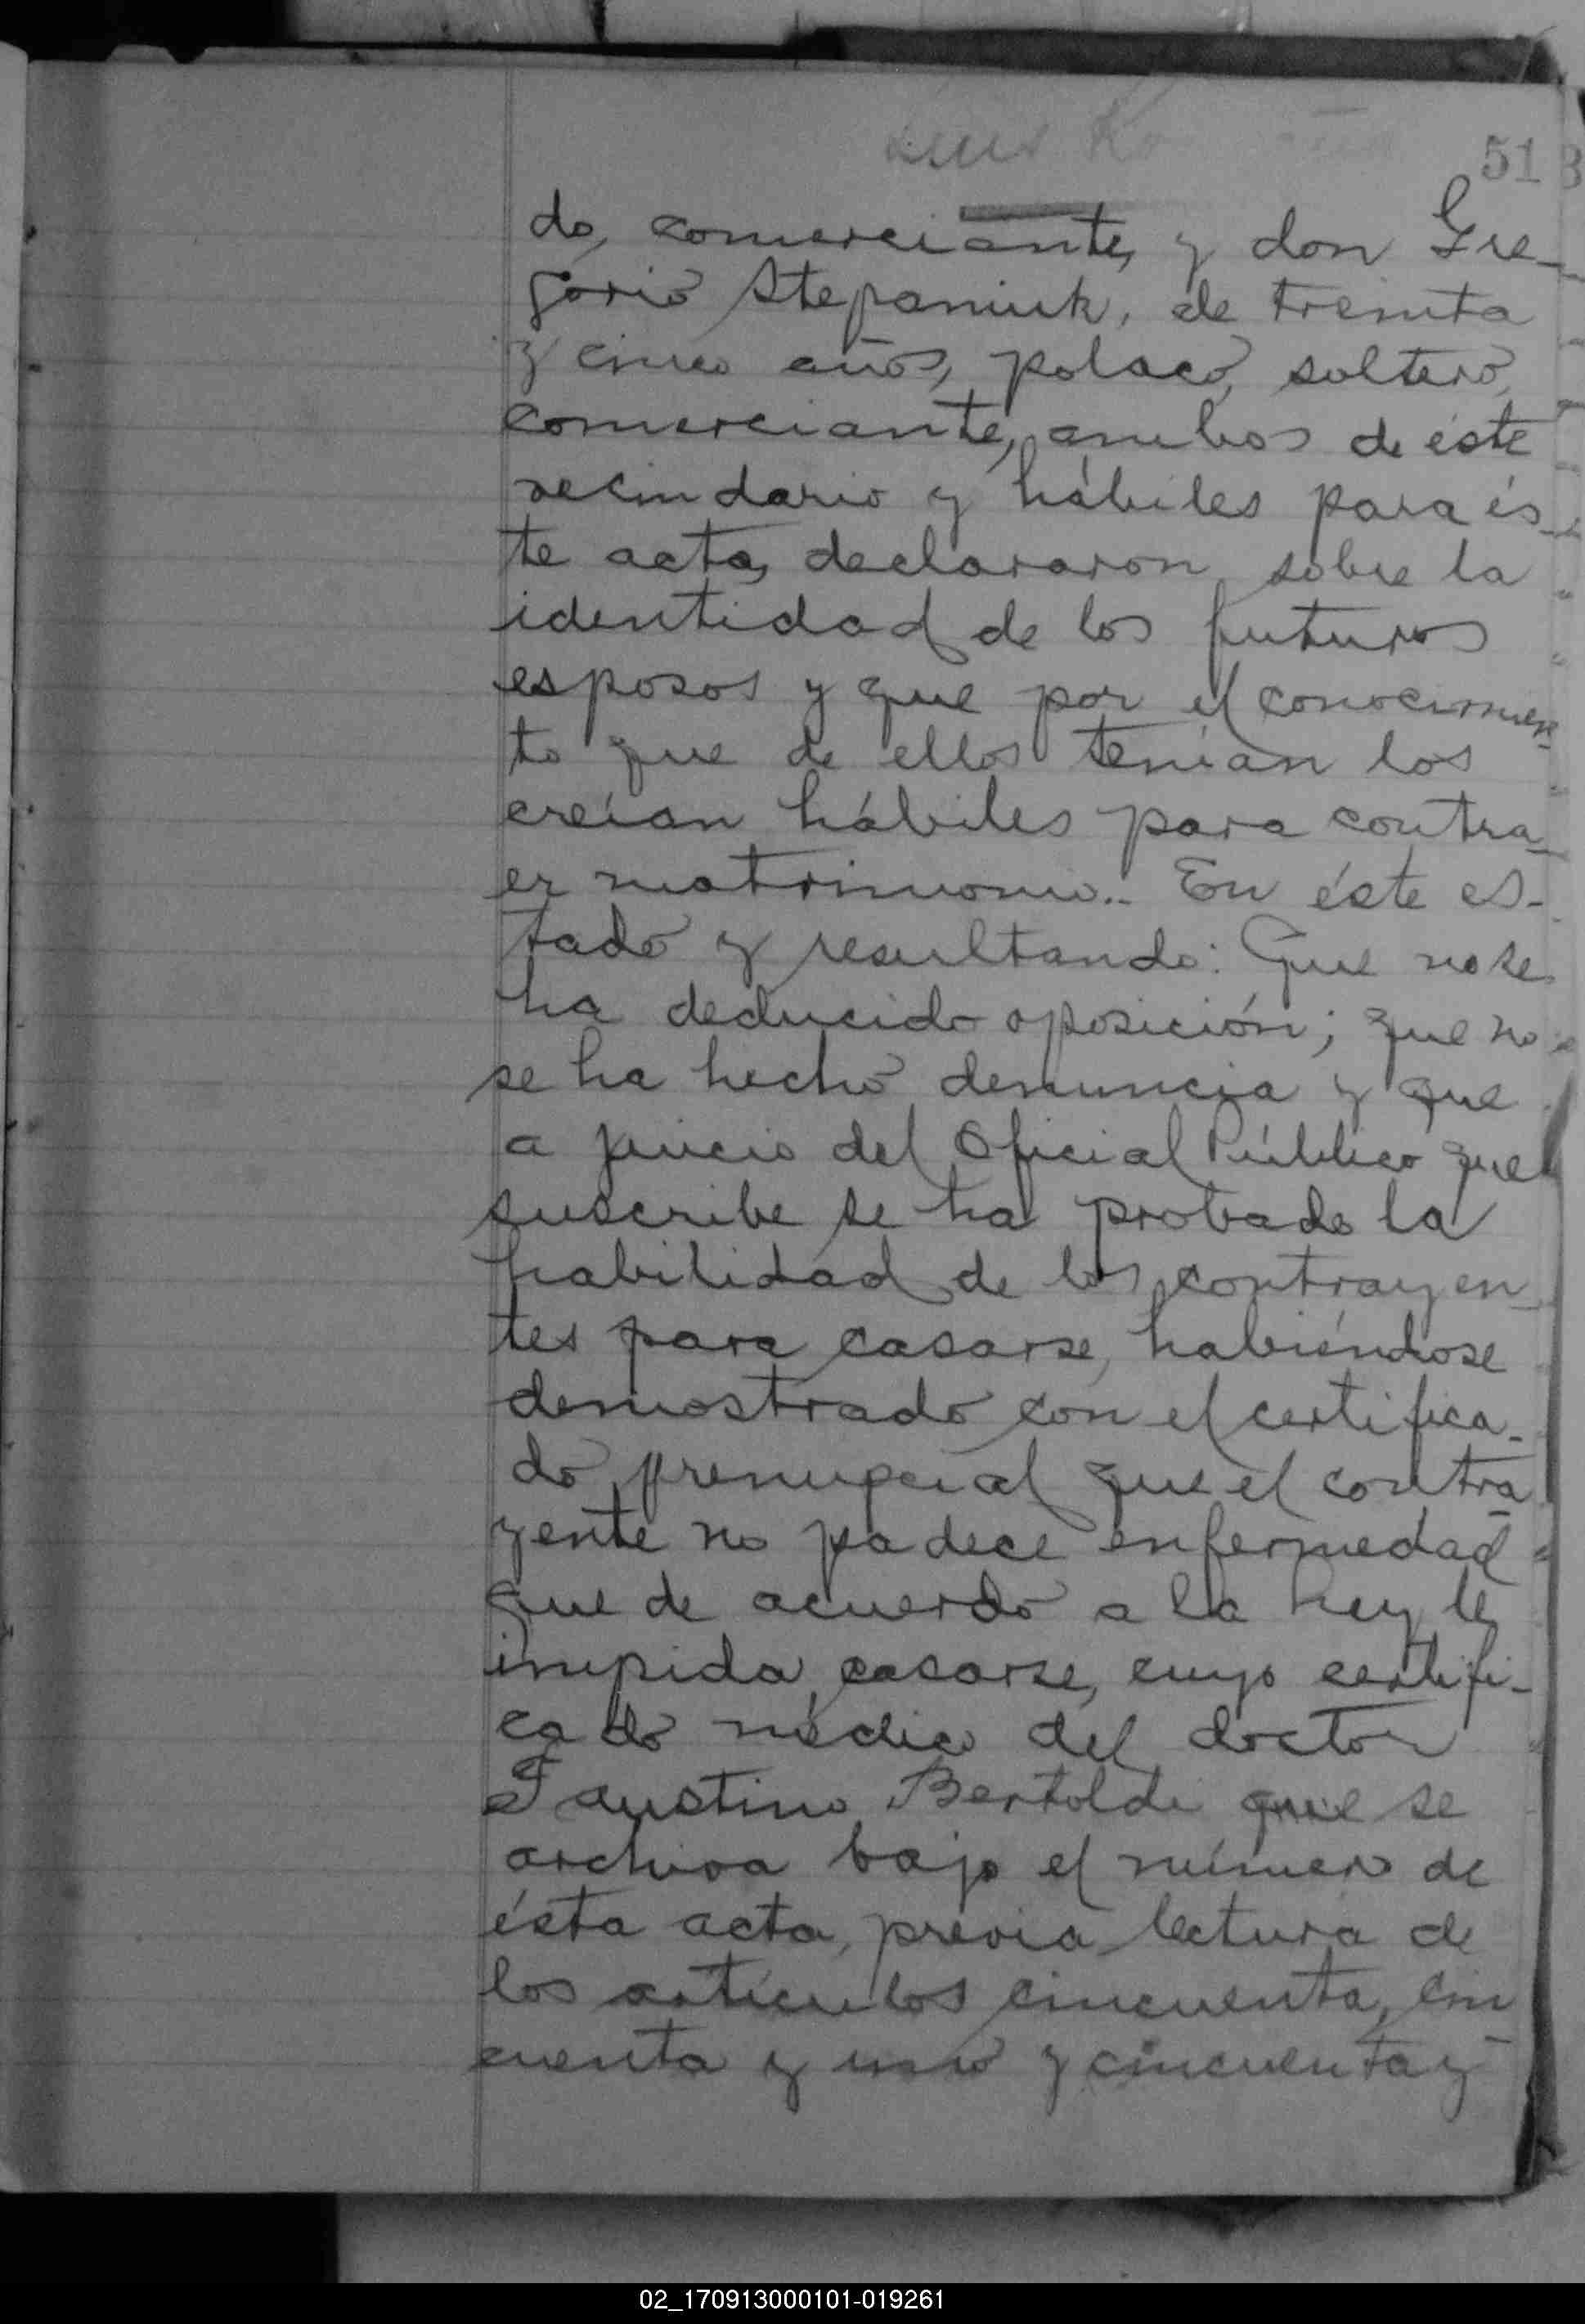 51
do, comerciante, y don Gre-
gorio Stepaniuk, de treinta
y cinco años, polaco, soltero,
comerciante, ambos de éste
vecindario y hábiles para és-
te acto, declararon sobre la
identidad de los futuros
esposos y que por el conocimien-
to que de ellos tenían los
creían hábiles para contra-
er matrimonio.- En éste es-
tado y resultando: Que no se
ha deducido oposición; que no
se ha hecho denuncia y que
a juicio del Oficial Público que
suscribe se ha probado la
habilidad de los contrayen-
tes para casarse, habiéndose
demostrado con el certifica-
do prenupcial que el contra-
yente no padece enfermedad
que de acuerdo a la Ley le
impida casarse, cuyo certifi-
cado médico del doctor
Faustino Bertoldi que se
archiva bajo el número de
ésta acta, previa lectura de
los artículos cincuenta, cin
cuenta y uno y cincuenta y
02_170913000101-019261